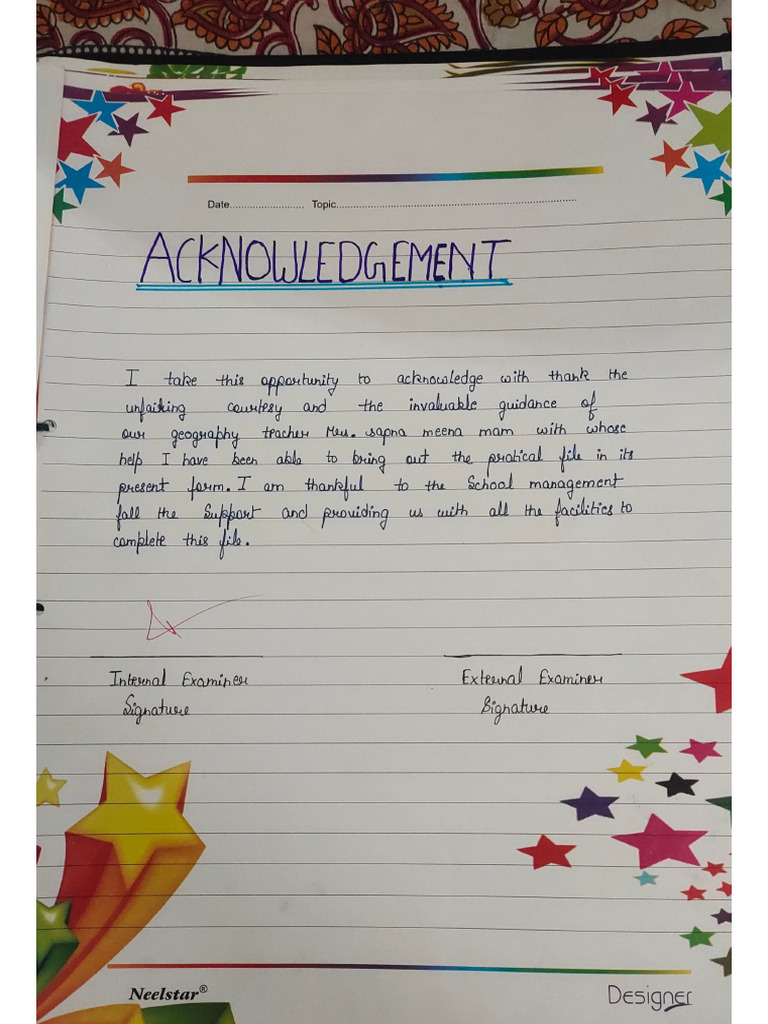 Date........................ Topic................................................................................
ACKNOWLEDGEMENT
I take this opportunity to acknowledge with thank the
unfairing courtesy and the invaluable guidance of
our geography teacher Mrs. sapna meena mam with whose
help I have been able to bring out the pratical file in its
present form. I am thankful to the School management
fall the Support and providing us with all the facilities to
complete this file.
Internal Examiner External Examiner
Signature Signature
Neelstar® Designer